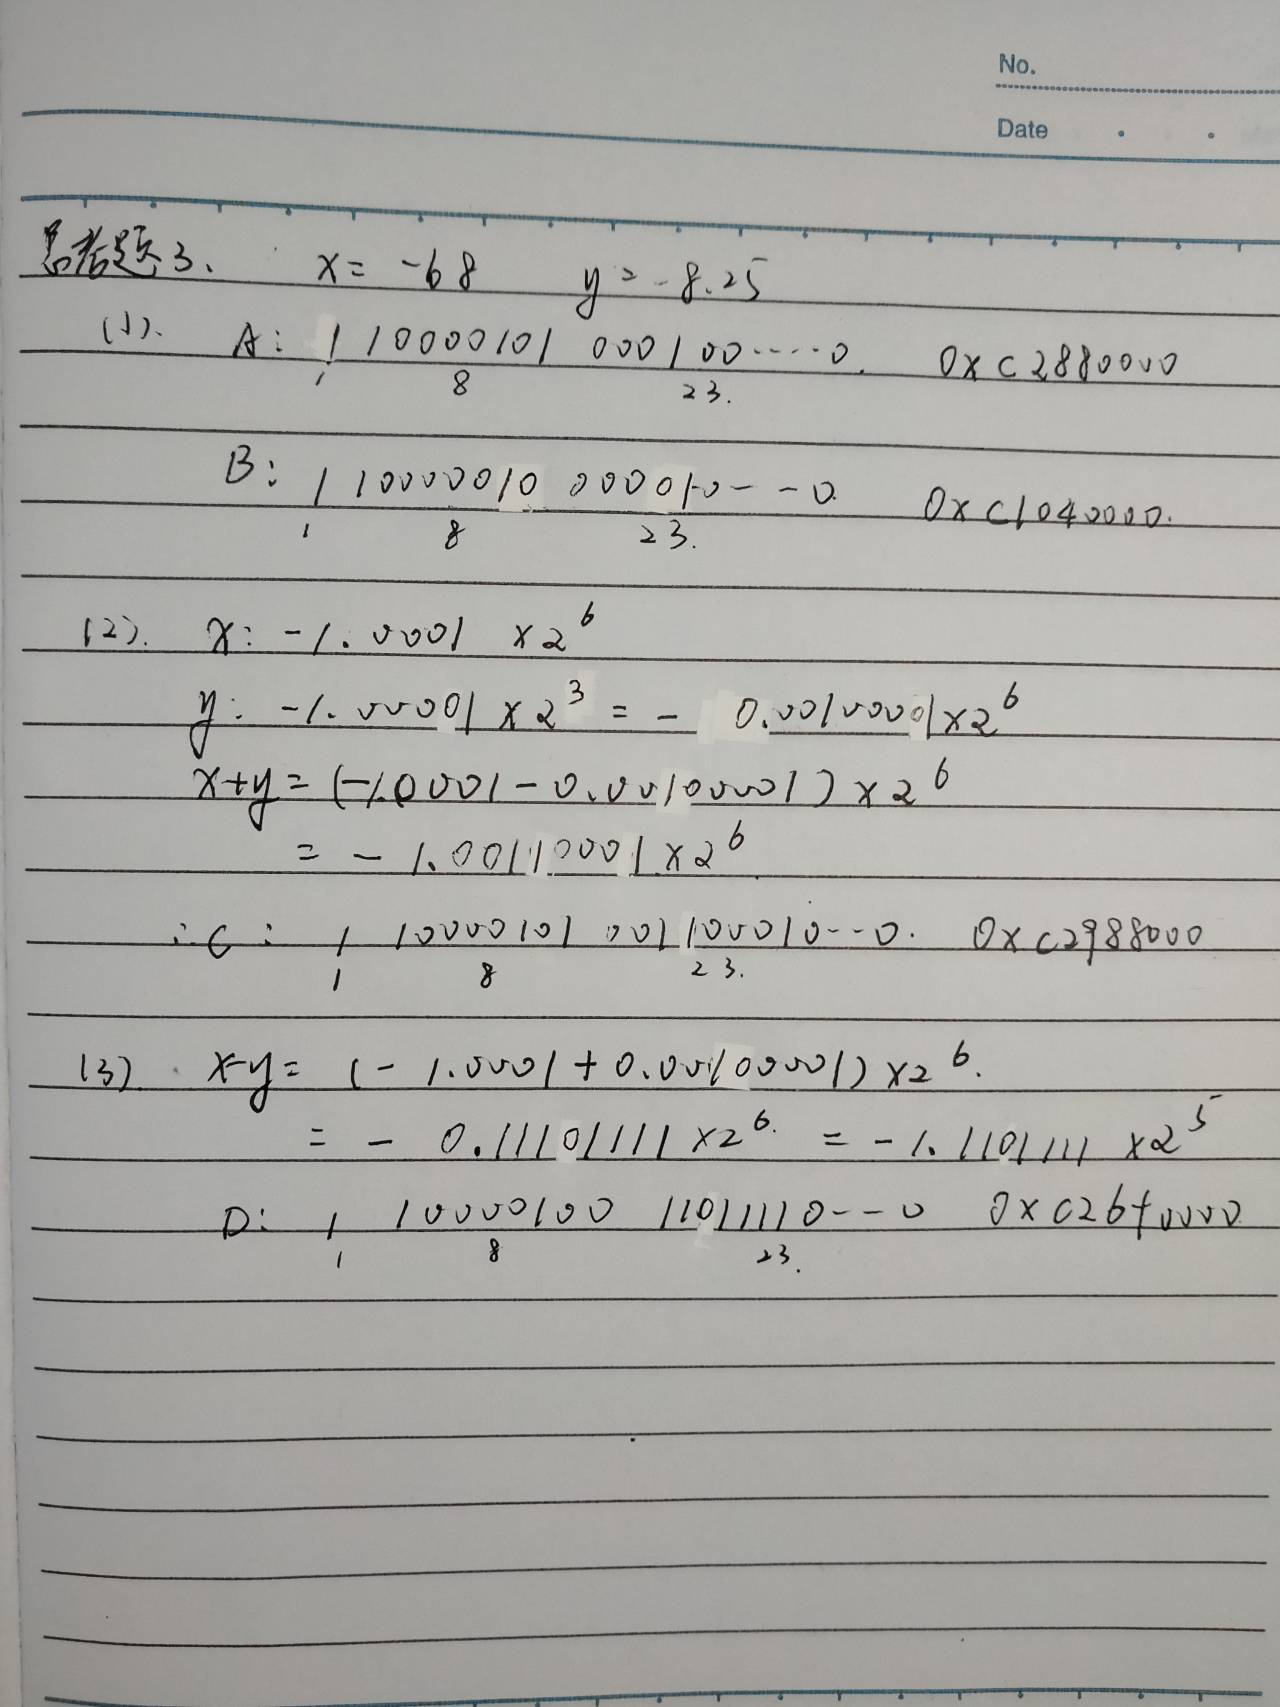 No.
Date
思考题3. x = -68 y = -8.25
(1). A: 1 10000101 000100·····0. 0xC2880000
1 8 23.
B: 1 10000010 000010---0. 0xC1040000.
1 8 23.
(2). x: -1.0001 ×2^6
y: -1.00001×2^3 = - 0.00100001×2^6
x+y = (-1.0001-0.00100001)×2^6
= -1.00110001×2^6
∴C: 1 10000101 001100010---0. 0xC2988000
1 8 23.
(3) x-y= (-1.0001+0.00100001)×2^6.
= - 0.11101111×2^6. = -1.1101111×2^5
D: 1 10000100 11011110---0 0xC26f0000
1 8 23.